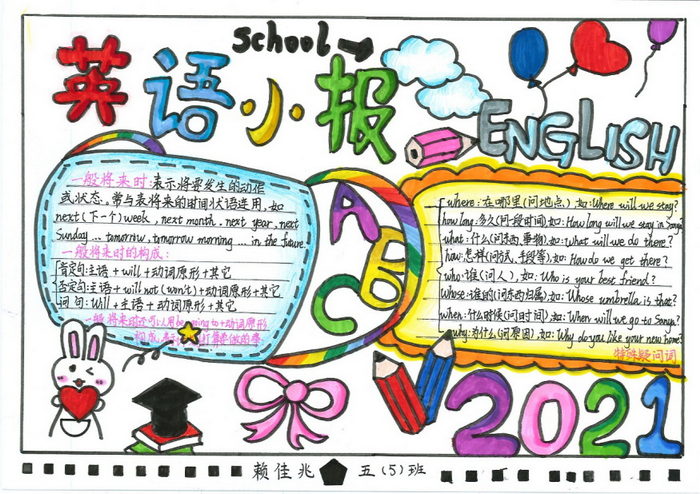 school
英语小报
ENGLISH
一般将来时:表示将要发生的动作
或状态,常与表将来的时间状语连用,如
next(下一个)week, next month, next year, next
Sunday ... tomorrow, tomorrow morning ... in the future.
一般将来时的构成:
肯定句:主语+will+动词原形+其它
否定句:主语+will not(won't)+动词原形+其它
问句:Will+主语+动词原形+其它
一般将来时还可以用be going to+动词原形
构成,
ABC
where:在哪里(问地点),如:Where will we stay?
how long:多久(问一段时间),如:How long will we stay in Sanya?
what:什么(问东西、事物),如:What will we do there?
how:怎样(问方式、手段等),如:How do we get there?
who:谁(问人),如:Who is your best friend?
whose:谁的(问东西归属),如:Whose umbrella is that?
when:什么时候(问时间),如:When will we go to Sanya?
why:为什么(问原因),如:Why do you like your new home?
特殊疑问词
2021
赖佳兆 五(5)班